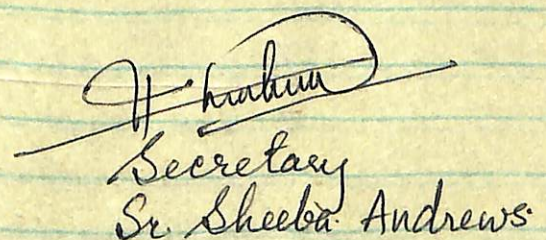 Secretary
Sr. Sheeba Andrews.